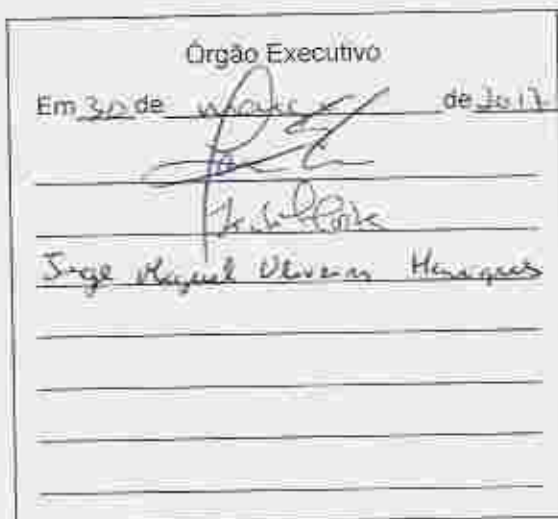 Órgão Executivo
Em 30 de março de 2017
Jorge Miguel Oliveira Henriques